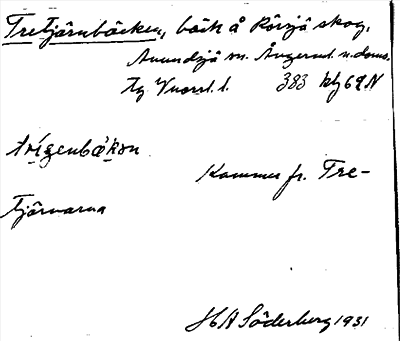 Tretjärnbäcken, bäck å Rörsjö skog,
Anundsjö sn. Ångerml. n. doms.
383
trigenbäkɔn
Kommer fr. Tre-
tjärnarna
HA Söderberg 1931